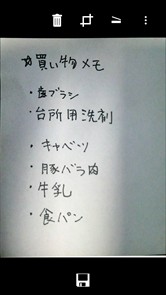 ☆買い物メモ
・歯ブラシ
・台所用洗剤
・キャベツ
・豚バラ肉
・牛乳
・食パン